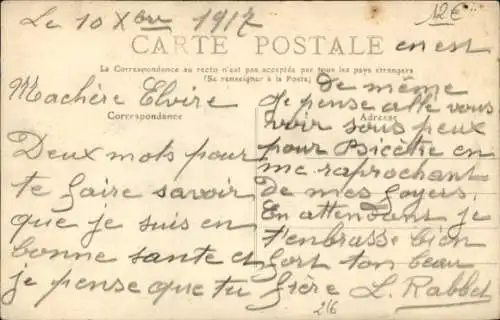 Le 10 Xbre 1917
12€
CARTE POSTALE
La Correspondance au recto n'est pas acceptée par tous les pays étrangers
(Se renseigner à la Poste)
Correspondance
Machère Elvire
Deux mots pour
te faire savoir
que je suis en
bonne sante et
je pense que tu
en est
de même
Je pense allé vous
Adresse
voir sous peux
pour Bicêtre en
me raprochant
de mes foyers
En attendant je
t'enbrasse bien
fort ton beau
frère L. Rabbet
216